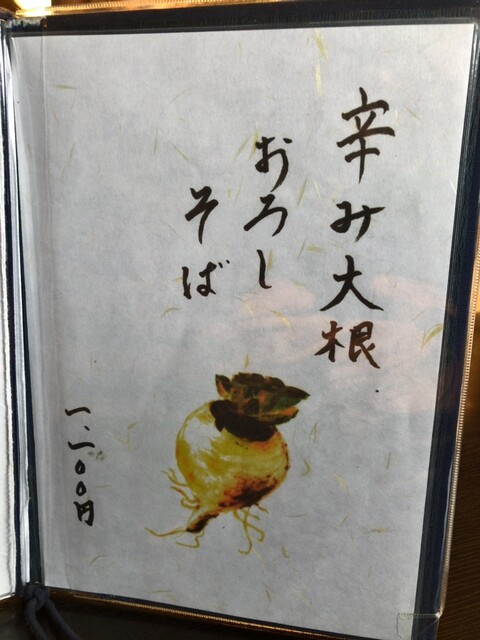 辛み大根
おろし
そば
一、一〇〇円